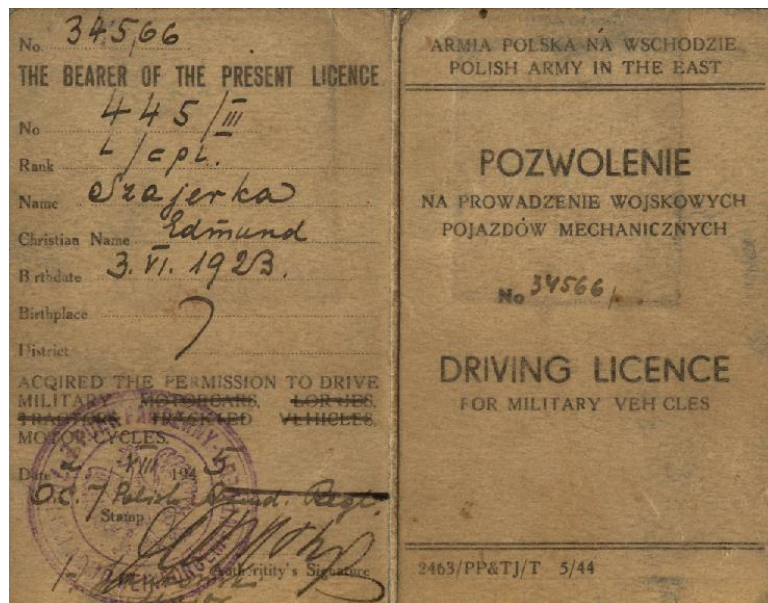 No. 34566
THE BEARER OF THE PRESENT LICENCE
No 445/III
Rank L/cpl.
Name Szajerka
Christian Name Edmund
Birthdate 3.VI.1923.
Birthplace
District
ACQIRED THE PERMISSION TO DRIVE
MILITARY MOTORCARS, LORRIES,
TRACTORS, TRACKLED VEHICLES,
MOTOR CYCLES.
Date 2 VIII 1945
O.C. 7 Polish Regt.
Stamp
Authoritity's Signature
ARMIA POLSKA NA WSCHODZIE
POLISH ARMY IN THE EAST
POZWOLENIE
NA PROWADZENIE WOJSKOWYCH
POJAZDÓW MECHANICZNYCH
No 34566/.
DRIVING LICENCE
FOR MILITARY VEHICLES
2463/PP&TJ/T 5/44